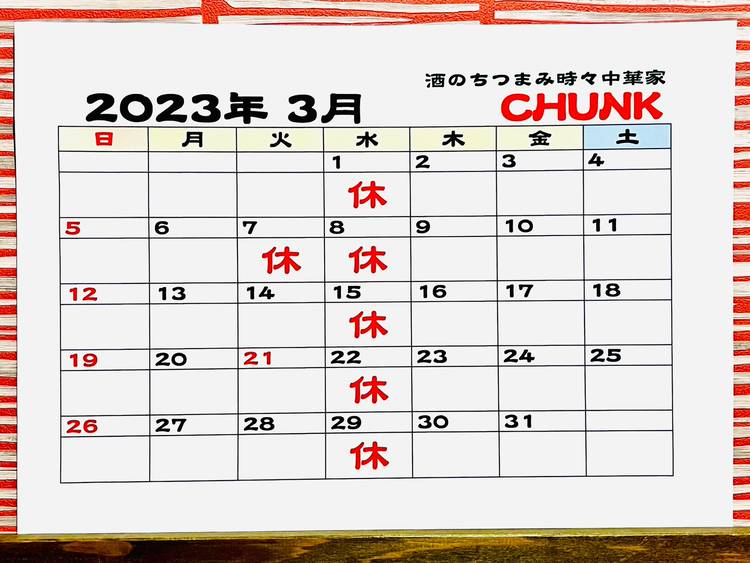 酒のちつまみ時々中華家
2023年 3月 CHUNK
日 月 火 水 木 金 土
1 2 3 4
休
5 6 7 8 9 10 11
休 休
12 13 14 15 16 17 18
休
19 20 21 22 23 24 25
休
26 27 28 29 30 31
休